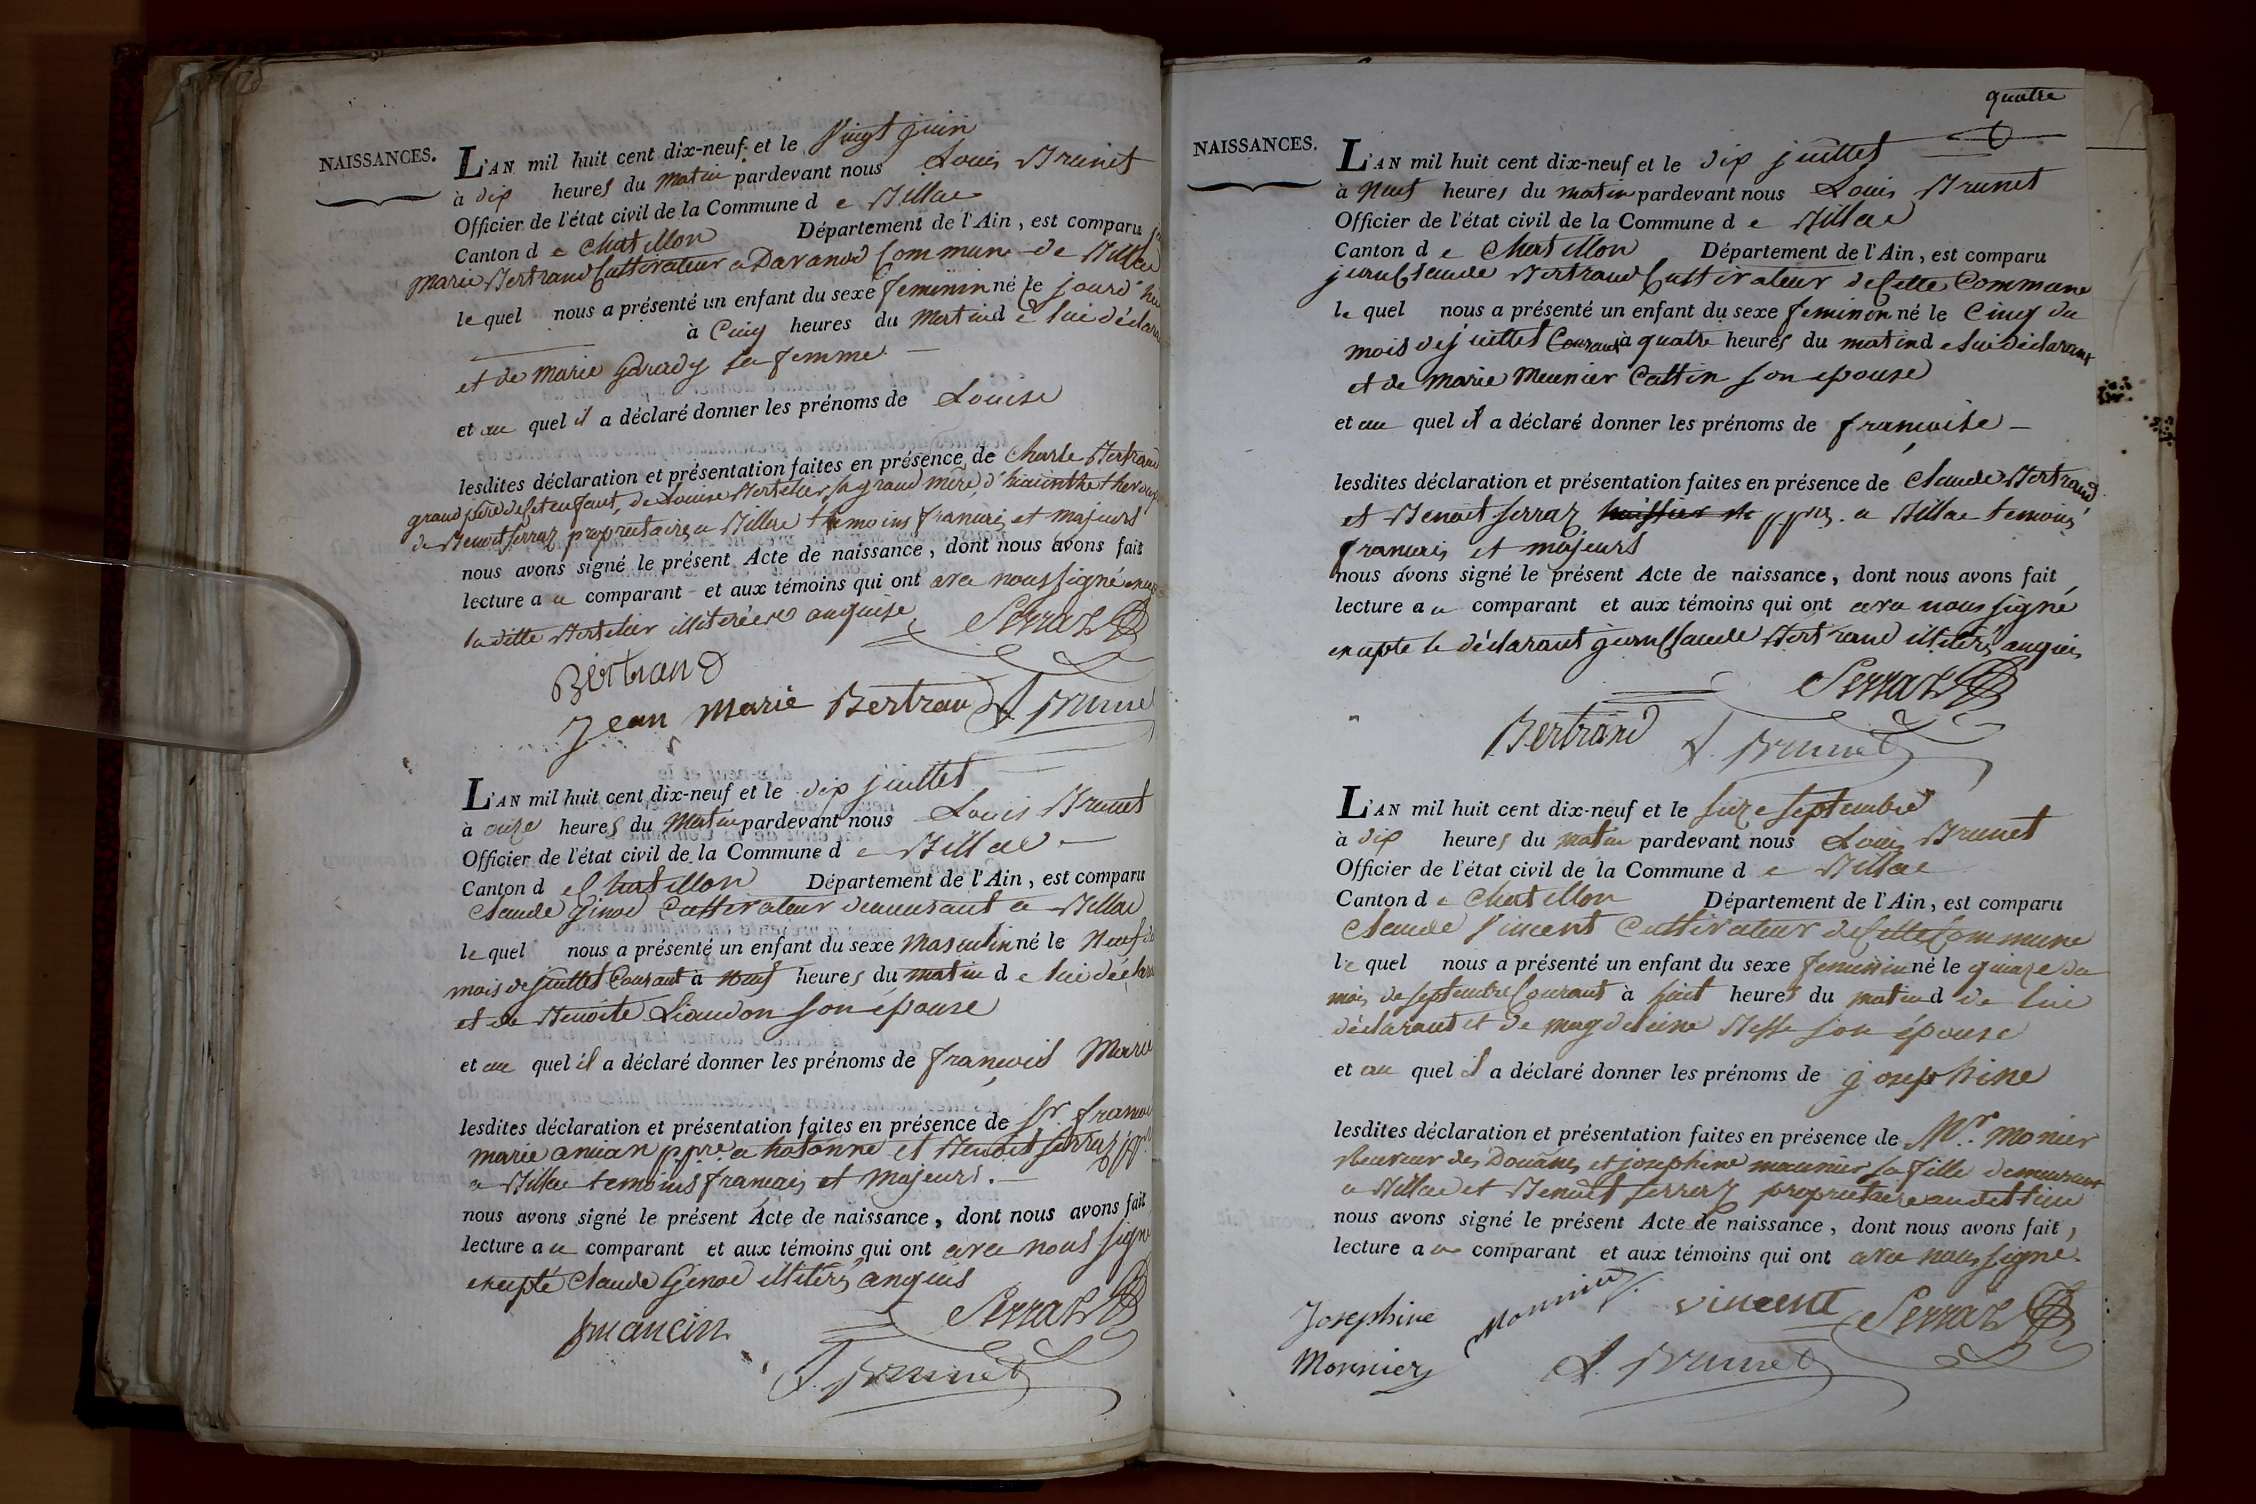 NAISSANCES.
L'AN mil huit cent dix-neuf et le Vingt juin
à dix heures du matin pardevant nous Louis Brunet
Officier de l'état civil de la Commune d e Billiac
Canton d e Chatillon Département de l'Ain, est comparu
marie Bertrand Cultivateur a Davanod Commune de Billiac
le quel nous a présenté un enfant du sexe feminin né le jourd'hui
à Cinq heures du Matin d e lui déclarant
et de Marie Garady sa femme
et au quel il a déclaré donner les prénoms de Louise
lesdites déclaration et présentation faites en présence de Charle Bertrand
grand père de Cet enfant, de Louise Bertelier sa grand mère, d'hiacinthe
de Benoit Serraz propriétaires a Billiac temoins francais et majeurs
nous avons signé le présent Acte de naissance, dont nous avons fait
lecture a u comparant et aux témoins qui ont avec nous signé
la ditte Bertelier illiterée enquise
Serraz
Bertrand
Jean Marie Bertran L Brunet
L'AN mil huit cent dix-neuf et le dix juillet
à onze heures du Matin pardevant nous Louis Brunet
Officier de l'état civil de la Commune d e Billiac
Canton d e Chatillon Département de l'Ain, est comparu
Claude Ginod Cultivateur demeurant a Billiac
le quel nous a présenté un enfant du sexe Masculin né le Neuf du
mois de juillet Courant à Neuf heures du matin d e lui déclarant
et de Benoite Liaudon son épouse
et au quel il a déclaré donner les prénoms de francois Marie
lesdites déclaration et présentation faites en présence de Sr. francois
marie ancian ppre. a hotonne et Benoit Serraz ppre.
a Billiac temoins francais et Majeurs.
nous avons signé le présent Acte de naissance, dont nous avons fait
lecture a u comparant et aux témoins qui ont avec nous signé
excepté Claude Ginod illiteré enquis
Serraz
L. Brunet
quatre
NAISSANCES.
L'AN mil huit cent dix-neuf et le dix juillet
à Neuf heures du matin pardevant nous Louis Brunet
Officier de l'état civil de la Commune d e Billiac
Canton d e Chatillon Département de l'Ain, est comparu
jean Claude Bertrand Cultivateur de Cette Commune
le quel nous a présenté un enfant du sexe feminin né le Cinq du
mois de juillet Courant à quatre heures du matin d e lui déclarant
et de Marie Meunier Cattin son epouse
et au quel il a déclaré donner les prénoms de francoise
lesdites déclaration et présentation faites en présence de Claude Bertrand
et Benoit Serraz huissier ppres. a Billiac temoins
francais et majeurs
nous avons signé le présent Acte de naissance, dont nous avons fait
lecture a u comparant et aux témoins qui ont avec nous signé
excepté le déclarant jean Claude Bertrand illiteré enquis
Serraz
Bertrand L. Brunet
L'AN mil huit cent dix-neuf et le seize septembre
à dix heures du matin pardevant nous Louis Brunet
Officier de l'état civil de la Commune d e Billiac
Canton d e Chatillon Département de l'Ain, est comparu
Claude Vincent Cultivateur de Cette Commune
le quel nous a présenté un enfant du sexe feminin né le quinze du
mois de septembre Courant à huit heures du matin d de lui
déclarant et de magdeleine Besse son épouse
et au quel il a déclaré donner les prénoms de josephine
lesdites déclaration et présentation faites en présence de Mr. Monier
Receveur des Douanes et josephine meunier sa fille demeurant
a Billiac et Benoit Serraz propriétaire audit lieu
nous avons signé le présent Acte de naissance, dont nous avons fait,
lecture a u comparant et aux témoins qui ont avec nous signé.
Josephine Monnier vincent Serraz
Monnier L. Brunet